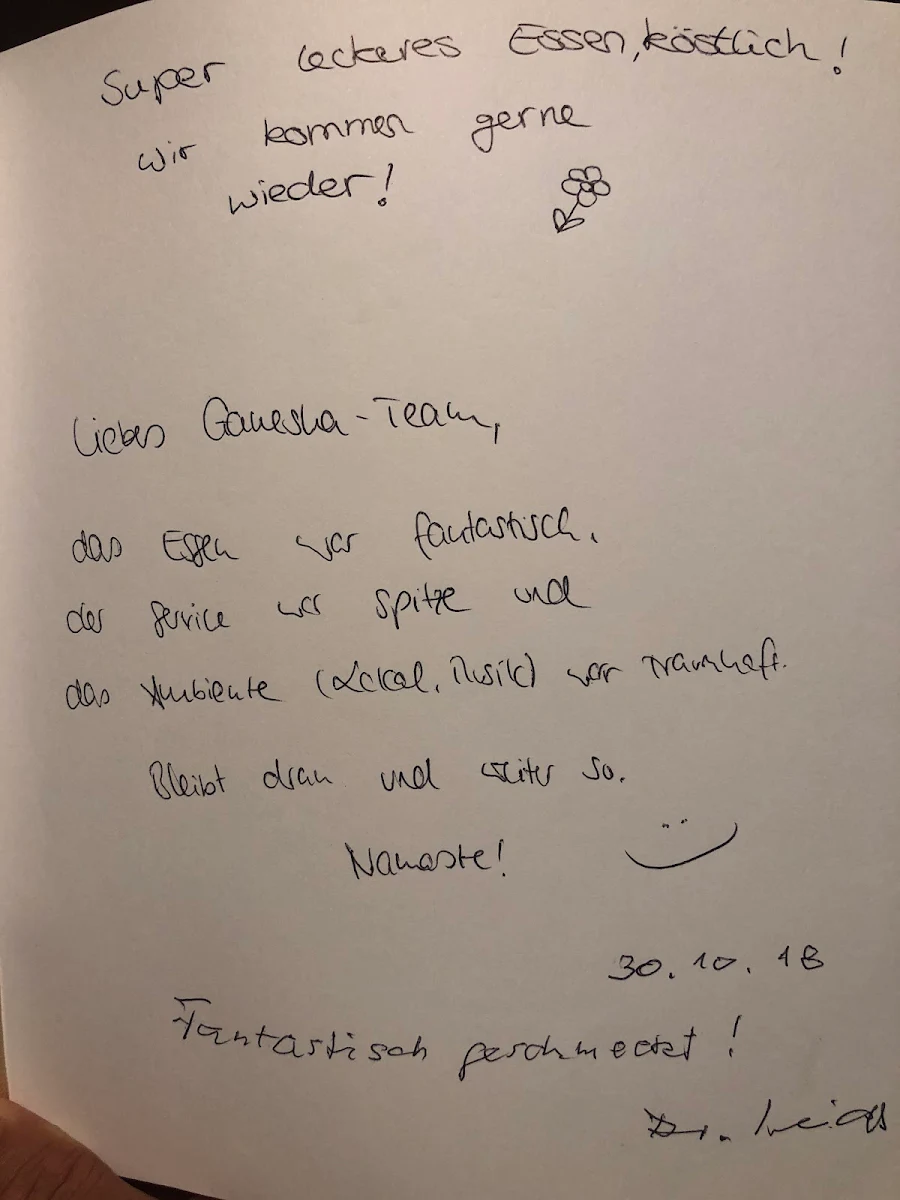 Super leckeres Essen, köstlich!
wir kommen gerne
wieder!
Liebes Ganesha-Team,
das Essen war fantastisch.
der Service war spitze und
das Ambiente (Lokal, Musik) war traumhaft.
Bleibt dran und weiter so.
Namaste!
30.10.18
Fantastisch geschmeckt!
Dr.